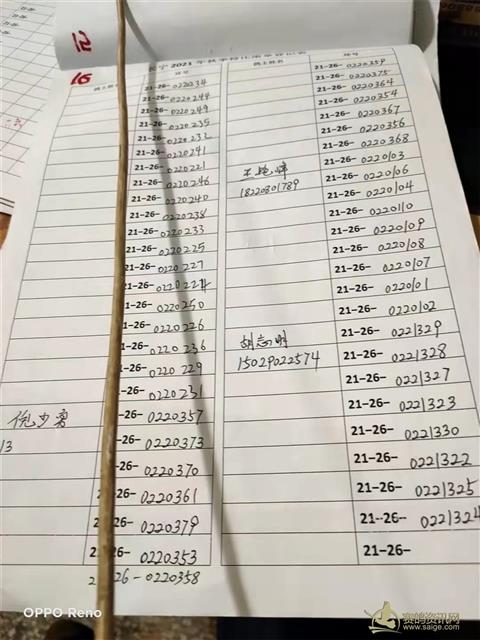 12
16
2021
环号
环号
21-26-0220234
21-26-0220244
21-26-0220249
21-26-0220235
21-26-0220232
21-26-0220241
21-26-0220221
21-26-0220246
21-26-0220240
21-26-0220238
21-26-0220233
21-26-0220225
21-26-0220227
21-26-0220224
21-26-0220250
21-26-0220226
21-26-0220236
21-26-0220229
21-26-0220231
21-26-0220357
21-26-0220373
21-26-0220370
21-26-0220361
21-26-0220379
21-26-0220353
26-0220358
13
21-26-0220359
21-26-0220375
21-26-0220364
21-26-0220354
21-26-0220367
21-26-0220356
21-26-0220368
21-26-0220103
21-26-0220106
18220801789
21-26-0220104
21-26-0220110
21-26-0220109
21-26-0220108
21-26-0220107
21-26-0220101
21-26-0220102
21-26-0221329
胡志明
21-26-0221328
15029022574
21-26-0221327
21-26-0221323
21-26-0221330
21-26-0221322
21-26-0221325
21-26-0221324
21-26-
OPPO Reno
赛鸽资讯网
www.saige.com